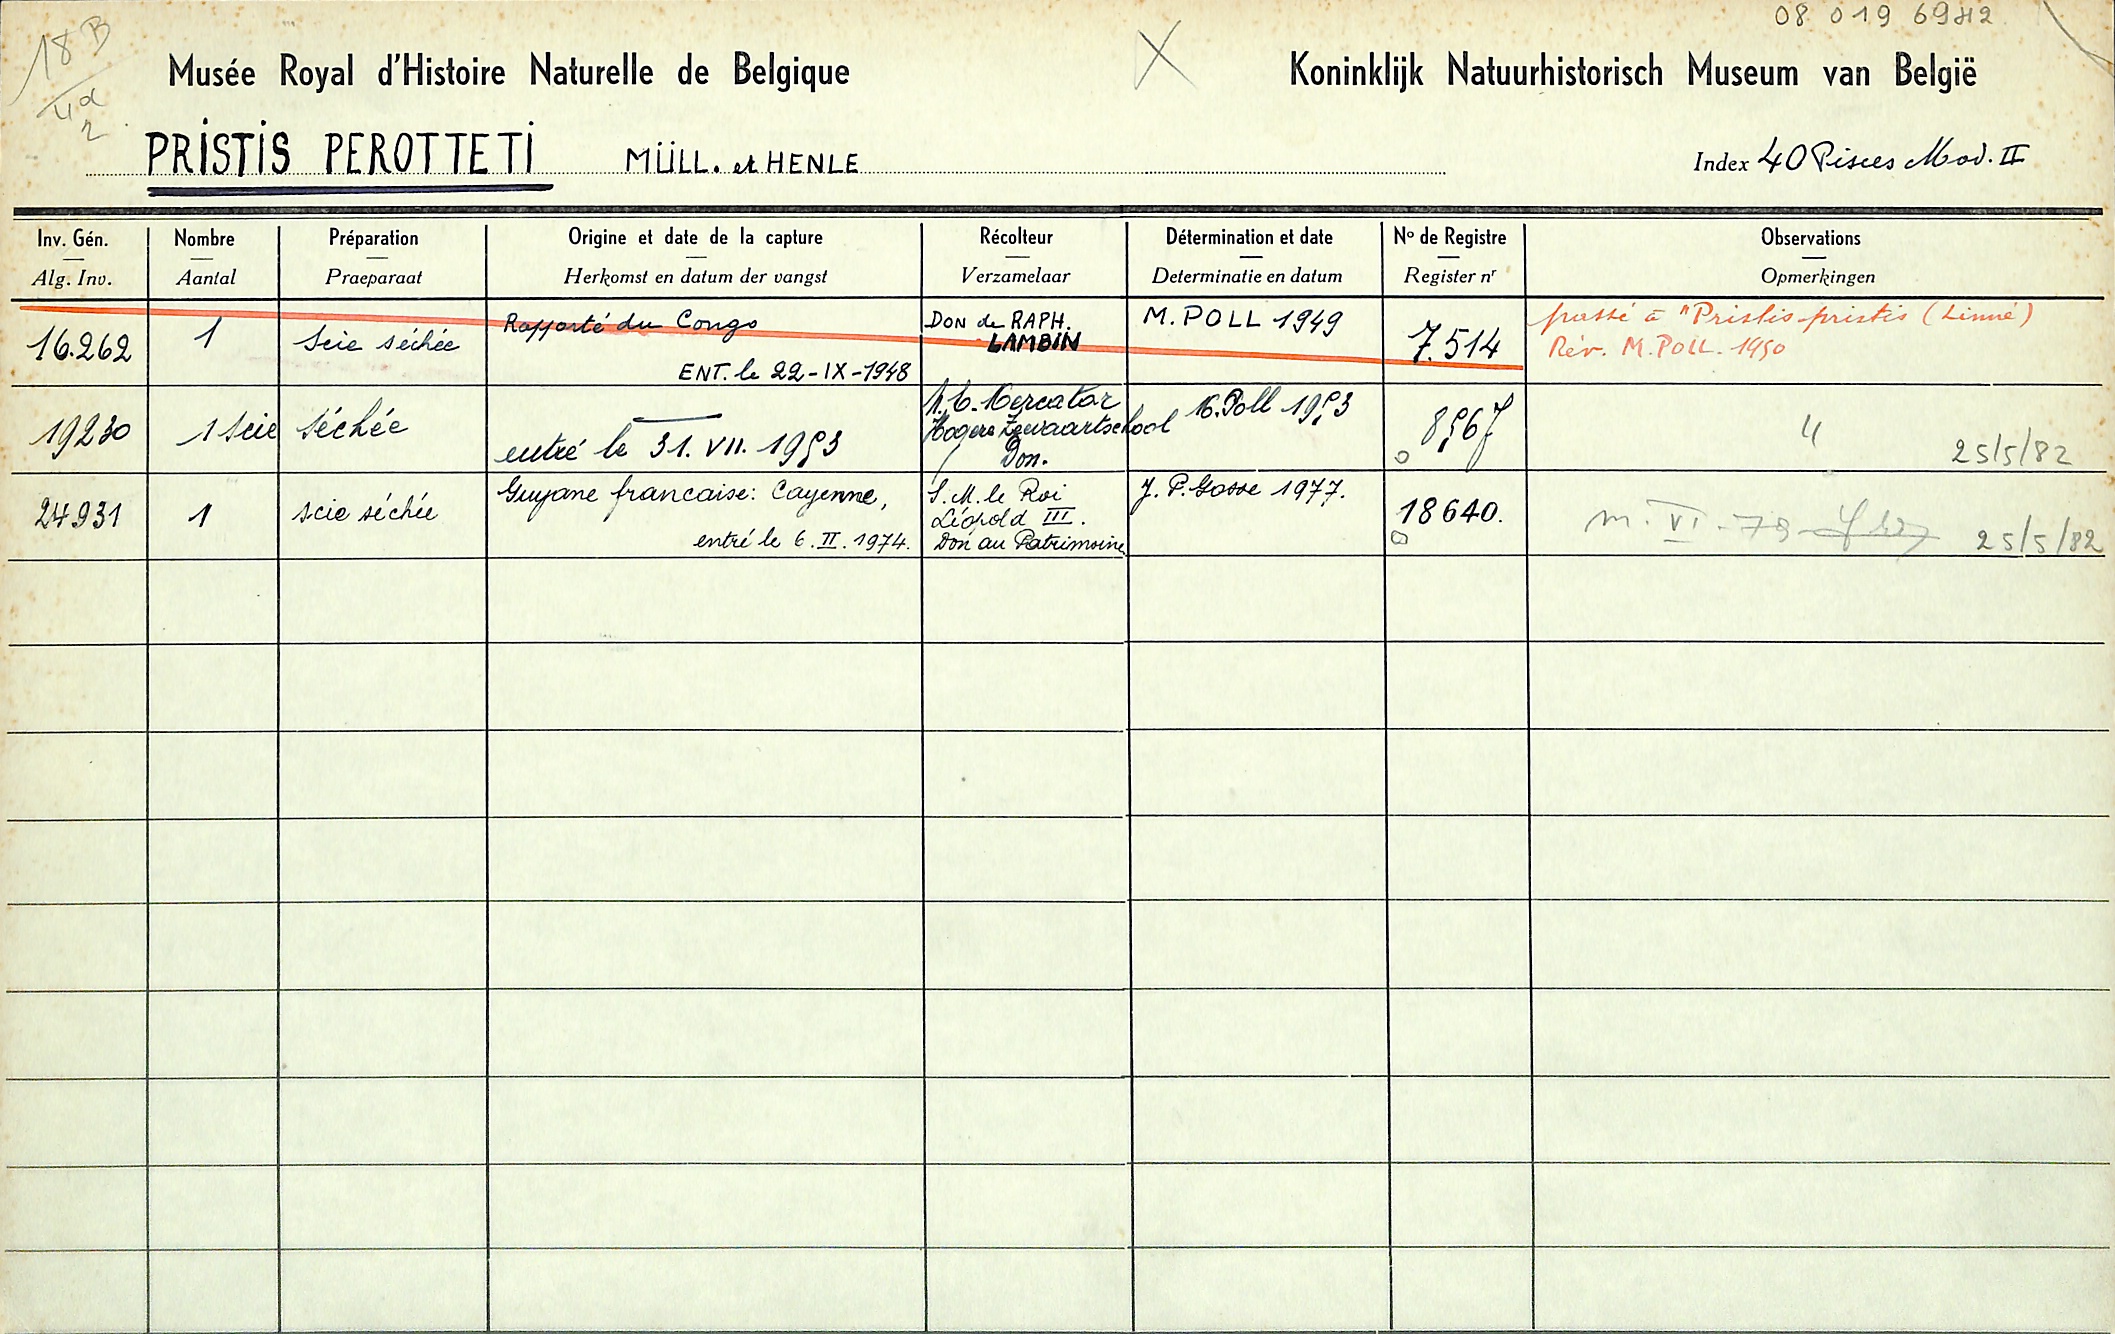 08 019 6942
18 B
Musée Royal d'Histoire Naturelle de Belgique
X
Koninklijk Natuurhistorisch Museum van België
PRISTIS PEROTTETI MÜLL. et HENLE
Index 40 Pisces Mod. II
Inv. Gén. Nombre Préparation Origine et date de la capture Récolteur Détermination et date No de Registre Observations
Alg. Inv. Aantal Praeparaat Herkomst en datum der vangst Verzamelaar Determinatie en datum Register nr Opmerkingen
16.262 1 Scie séchée
Rapporté du Congo
ENT. le 22-IX-1948
DON de RAPH.
LAMBIN
M. POLL 1949
7.514
passé à "Pristis pristis (Linné)
Rév. M. POLL. 1950
19230 1 Scie séchée
entré le 31. VII. 1953
Mercator
Hogere Zeevaartschool
Don.
M. Poll 1953
8567
25/5/82
24931 1 scie séchée
Guyane francaise: Cayenne,
entré le 6. II. 1974.
S. M. le Roi
Léopold III.
Don au Patrimoine
J. P. Gosse 1977.
18640.
m. VI - 79
25/5/82